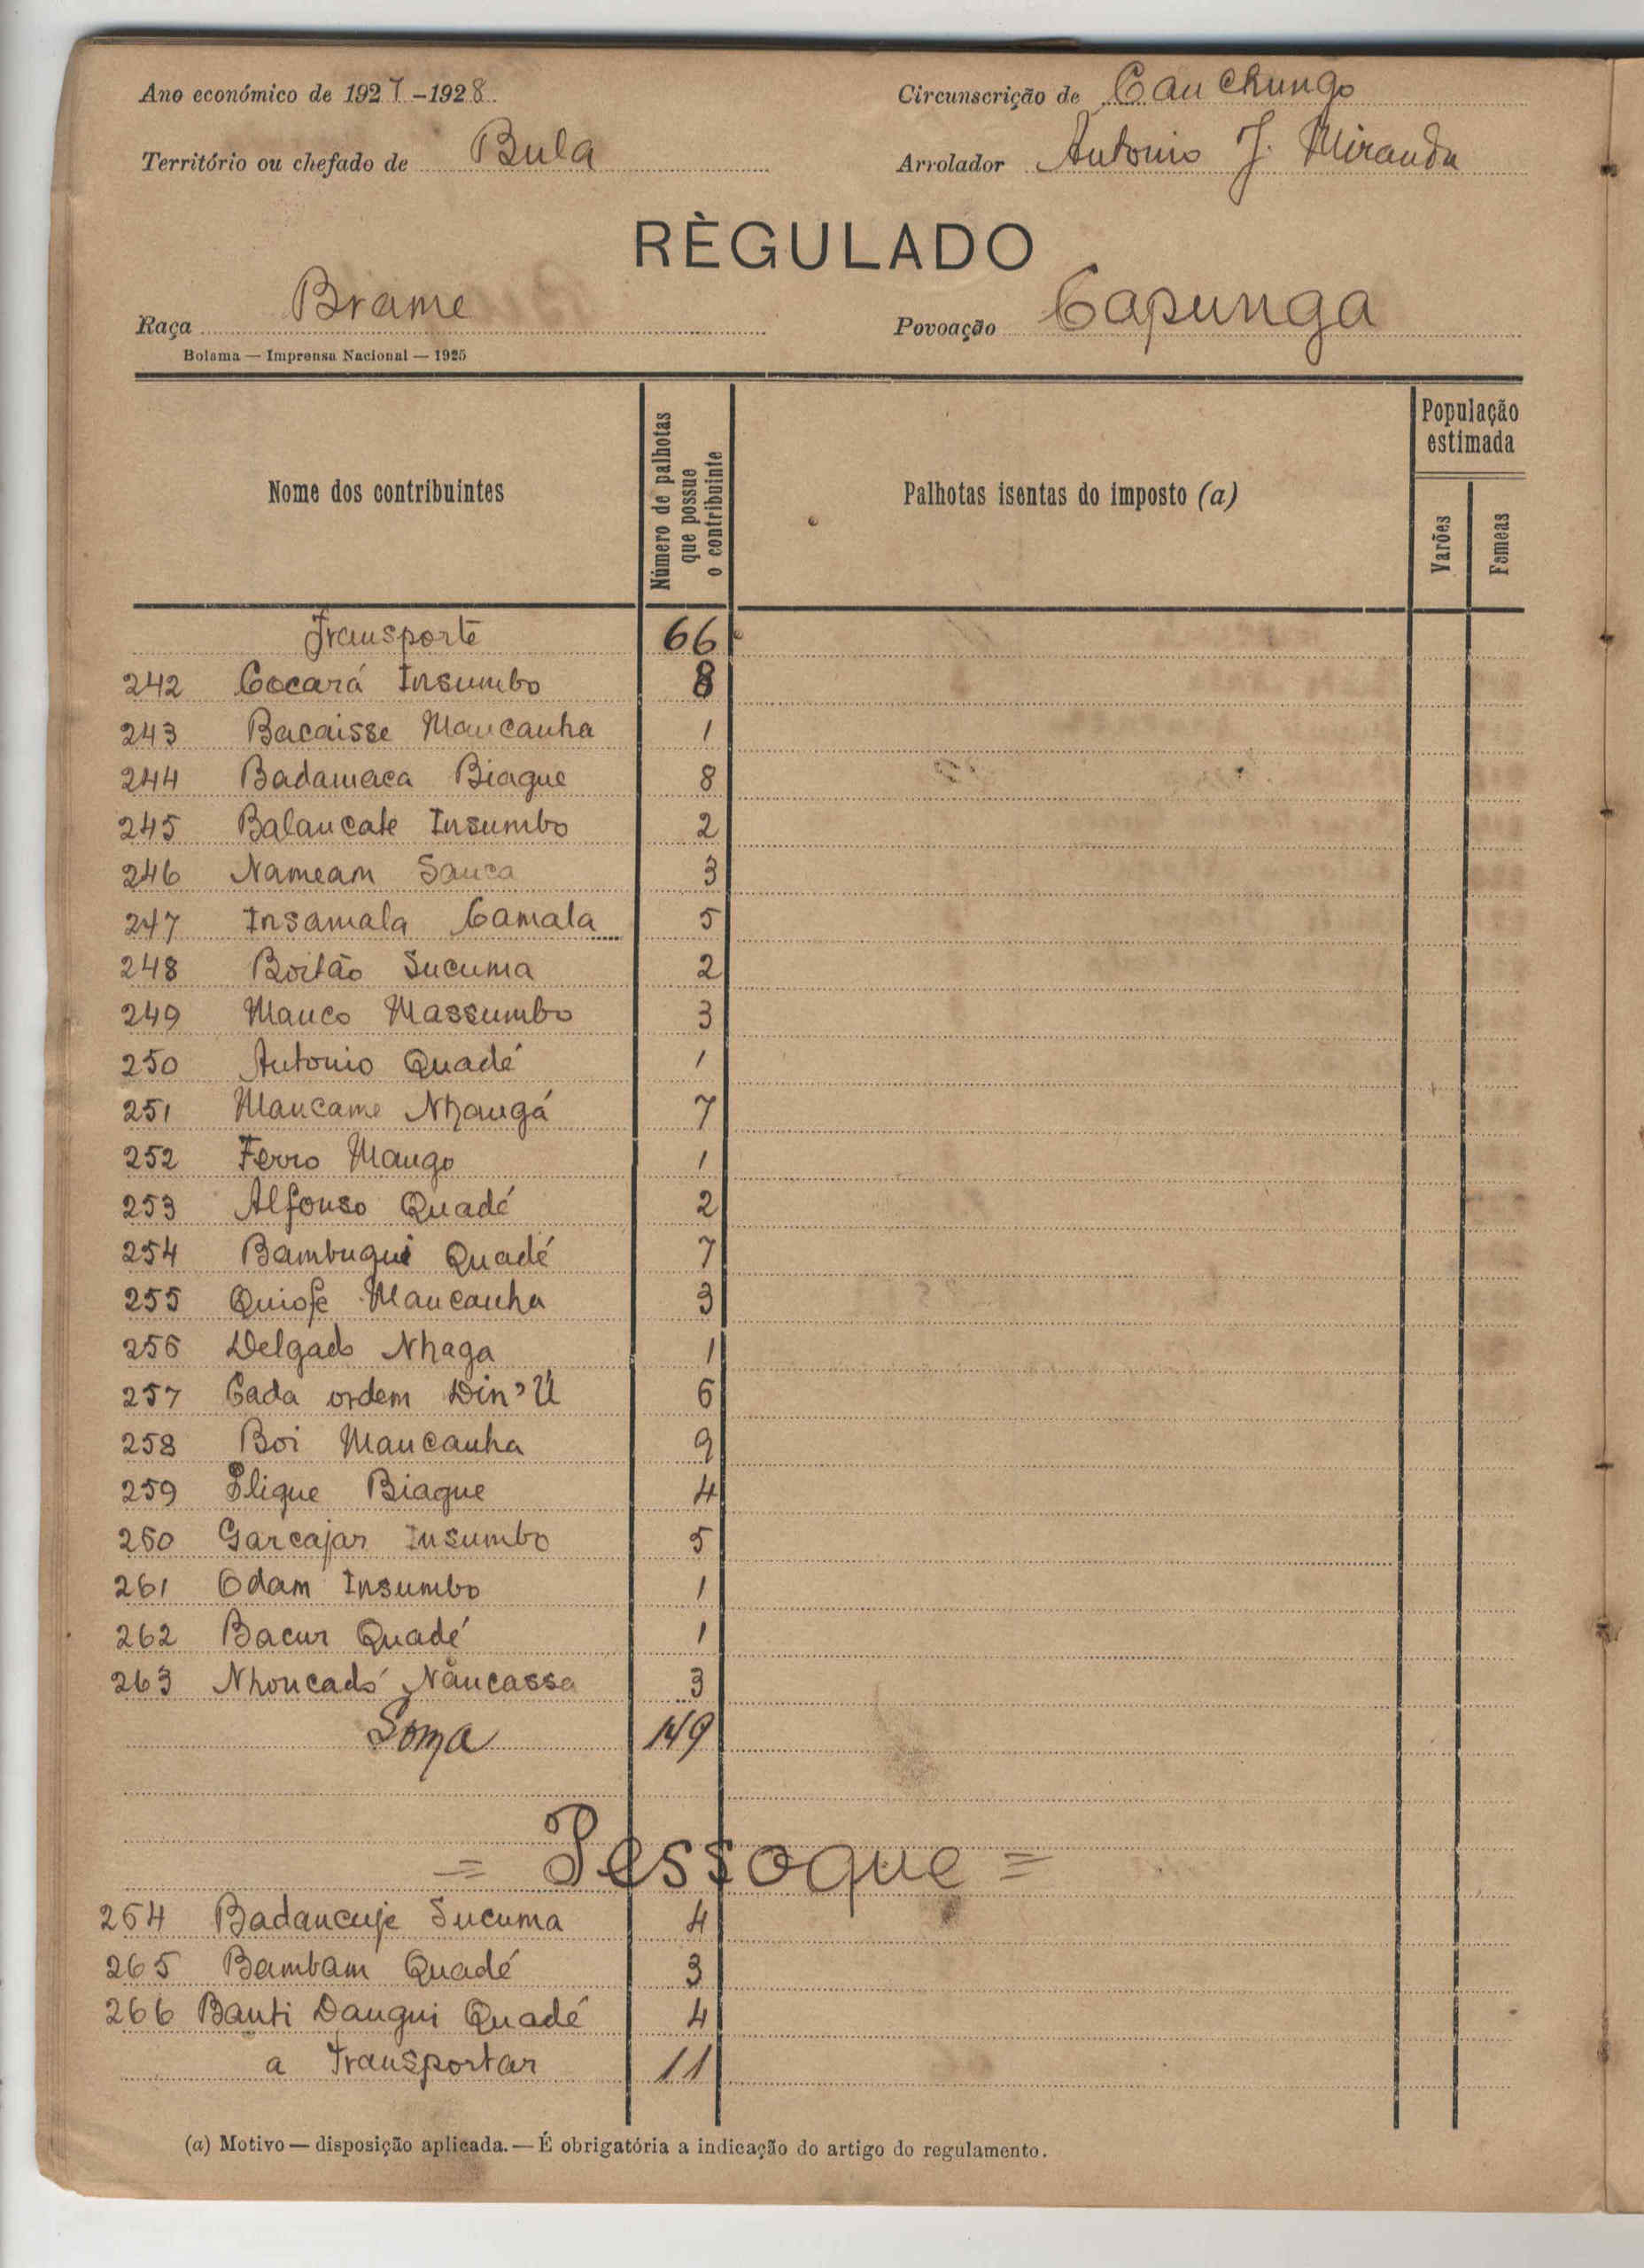 Ano económico de 1927-1928
Circunscrição de Canchungo
Território ou chefado de Bula
Arrolador Antonio J. Miranda
RÈGULADO
Raça Brame
Povoação Capunga
Bolama — Imprensa Nacional — 1925
Nome dos contribuintes
Número de palhotas que possue o contribuinte
Palhotas isentas do imposto (a)
População estimada
Varões
Femeas
Transporte 66
242 Cocará Insumbo 8
243 Bacaisse Mancanha 1
244 Badamaca Biague 8
245 Balancate Insumbo 2
246 Nameam Sanca 3
247 Insamala Camala 5
248 Boitão Sucuma 2
249 Manco Massumbo 3
250 Antonio Quadé 1
251 Mancame Nhangá 7
252 Ferro Mango 1
253 Alfonso Quadé 2
254 Bambugui Quadé 7
255 Quiofe Mancanha 3
256 Delgado Nhaga 1
257 Cada ordem Din'Ú 6
258 Boi Mancanha 9
259 Slique Biague 4
260 Garcajar Insumbo 5
261 Odam Insumbo 1
262 Bacur Quadé 1
263 Nhoncadó Nancassa 3
Soma 149
= Pessoque =
264 Badancuje Sucuma 4
265 Bambam Quadé 3
266 Banti Dangui Quadé 4
a Transportar 11
(a) Motivo — disposição aplicada. — É obrigatória a indicação do artigo do regulamento.